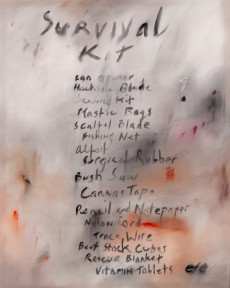 Survival
Kit
can opener
Hacksaw Blade
Sewing Kit
Plastic Bags
Scalpel Blade
Fishing Net
Surgical Rubber
Bush Saw
Canvas Tape
Pencil and Notepaper
Nylon Cord
Wire
Beef Stock Cubes
Rescue Blanket
Vitamin Tablets etc